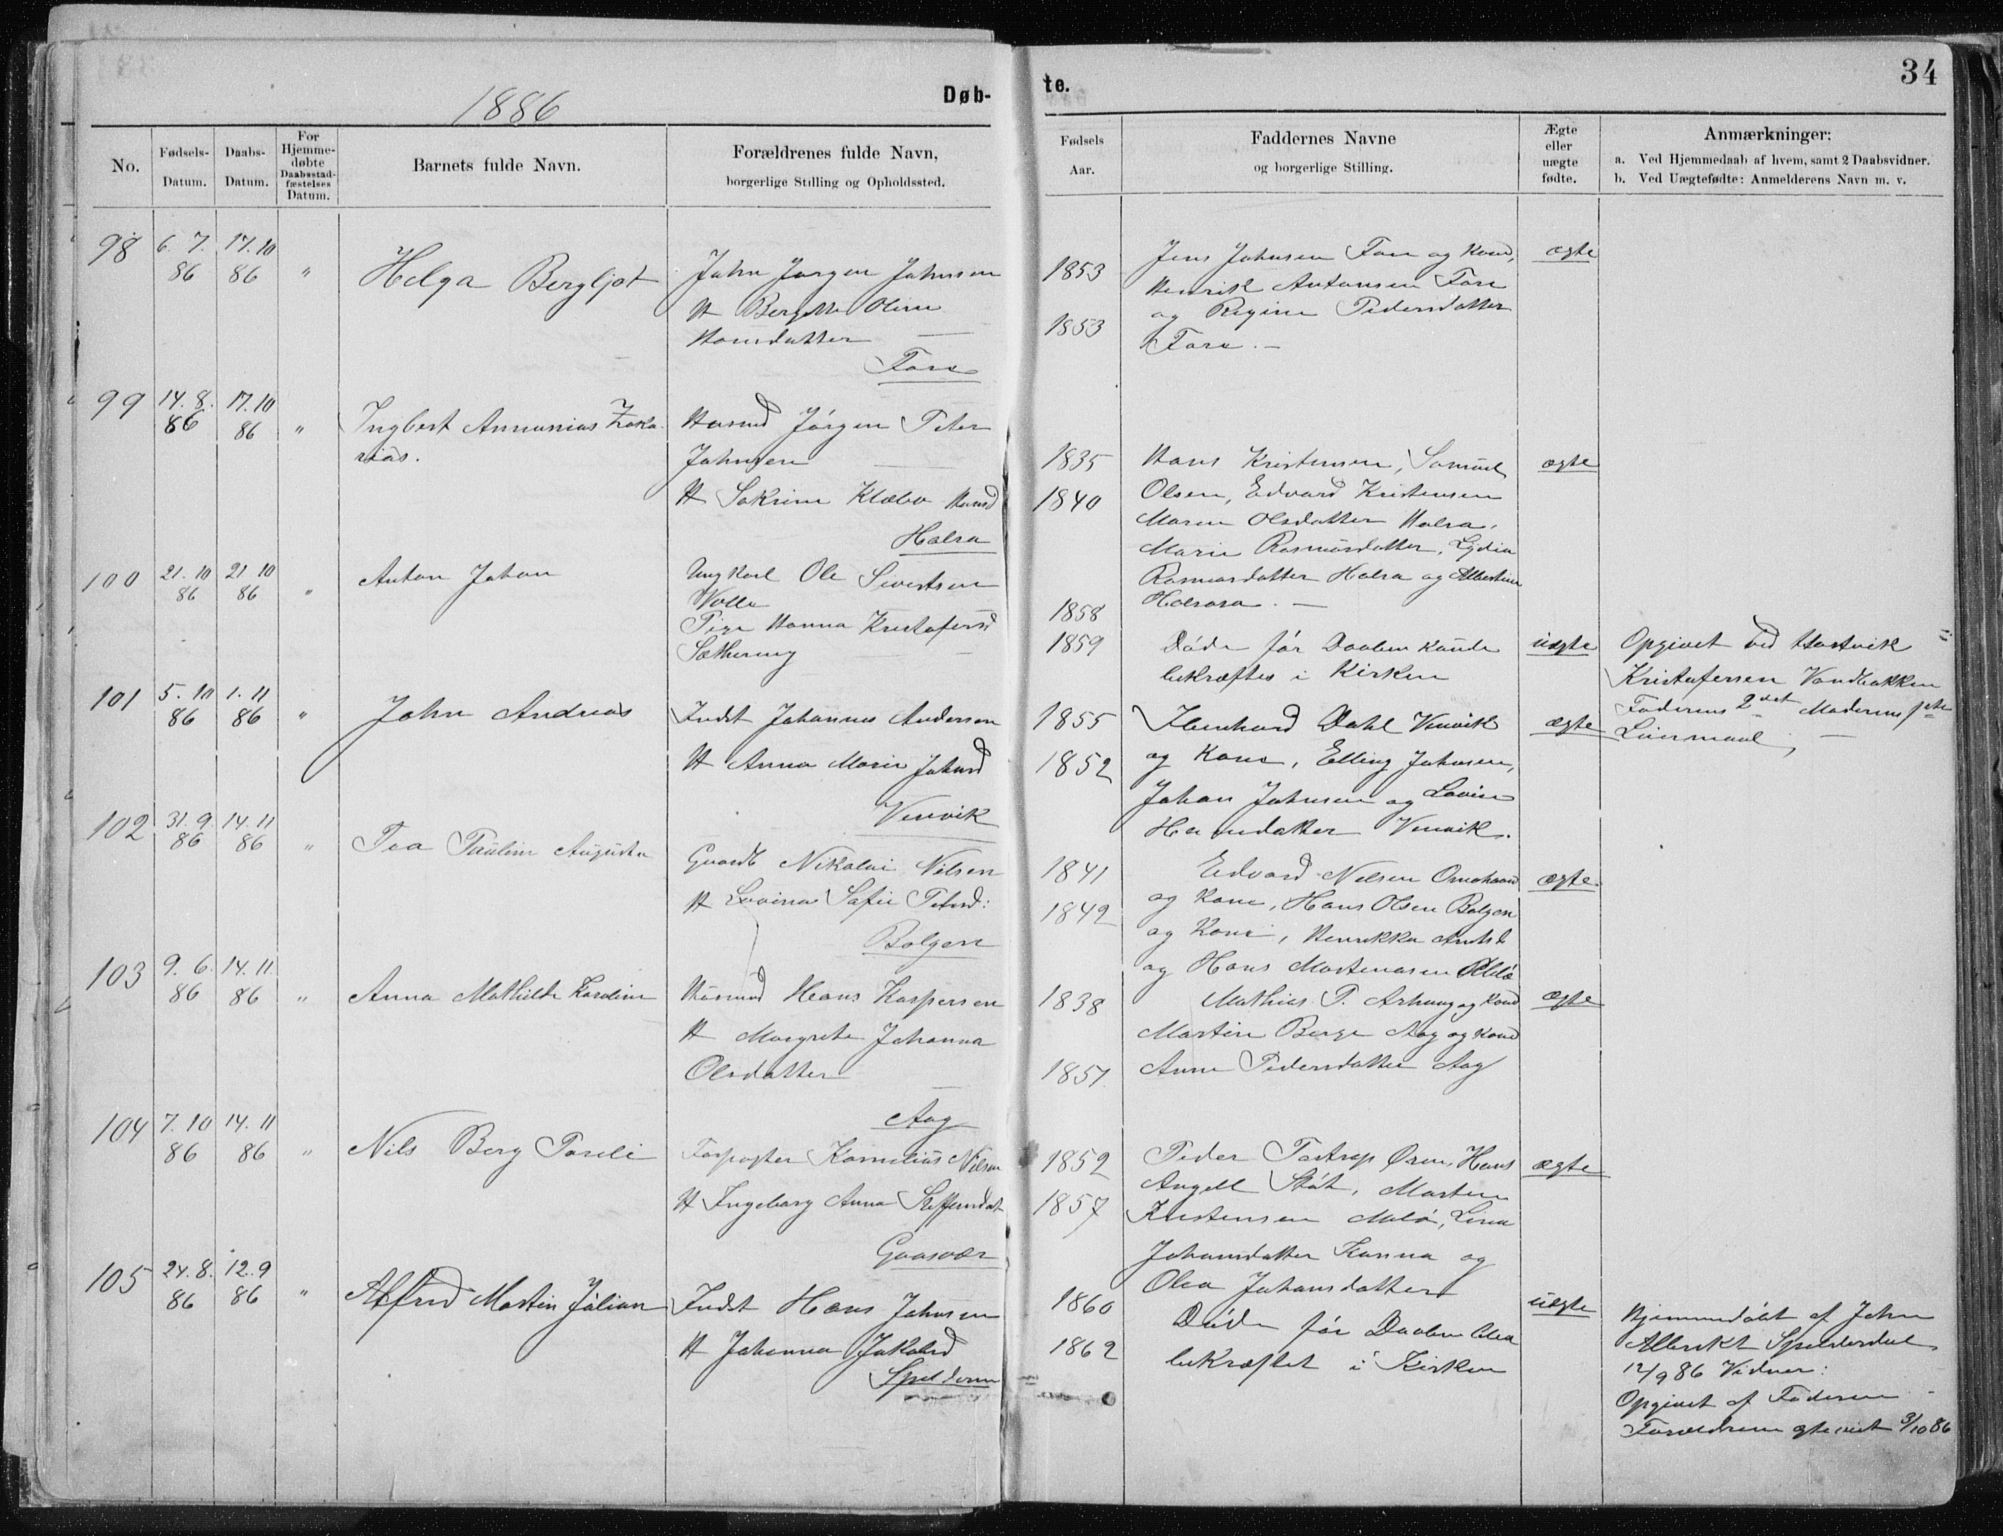 1886
Døb-
te.
34
No.
Fødsels-
Datum.
Daabs-
Datum.
For
Hjemme-
døbte
Daabsstad-
fæstelses
Datum.
Barnets fulde Navn.
Forældrenes fulde Navn,
borgerlige Stilling og Opholdssted.
Fødsels
Aar.
Faddernes Navne
og borgerlige Stilling.
Ægte
eller
uægte
fødte.
Anmærkninger:
a. Ved Hjemmedaab af hvem, samt 2 Daabsvidner.
b. Ved Uægtefødte: Anmelderens Navn m. v.
98
6. 7.
86
17. 10
86
"
Helga Bergljot
John Jørgen Johnsen
H Bergitte Oline
Hansdatter
Fore
1853
1853
Jens Johnsen Fore og Kone,
Henrik Antonsen Fore
og Regine Pedersdatter
Fore. —
ægte
99
14. 8.
86
17. 10
86
"
Ingbert Annanias Zaka
rias.
Husmd Jørgen Peter
Johnsen
H Sakrine Klæbo Hansd
Halsa
1835
1840
Hans Kristensen, Samuel
Olsen, Edvard Kristensen
Maren Olsdatter Halsa,
Marie Rasmusdatter, Lydia
Rasmusdatter Halsa og Albertine
Halsosa. —
ægte
100
21. 10
86
21. 10
86
"
Anton Johan
Ungkarl Ole Sivertsen
Valla
Pige Hanna Kristofersd
Sæthereng
1858
1859
Døde før Daaben kunde
bekræftes i Kirken
uægte
Opgivet ved Hartvik
Kristofersen Vandbakken
Faderens 2det Moderens 1ste
Leiermaal
101
5. 10
86
1. 11
86
"
John Andreas
Indst Johannes Andersen
H Anna Marie Johnsd
Venvik
1855
1852
Ebenhard Dahl Venvik
og Kone, Elling Johnsen,
Johan Johnsen og Lovise
Hansdatter Venvik.
ægte
102
31. 9.
86
14. 11
86
"
Tea Pauline Augusta
Gaardb Nikolai Nilsen
H Lovina Sofie Petersd:
Bolgen
1841
1842
Edvard Nilsen
og Kone, Hans Olsen Bolgen
og Kone, Henrikka
og Hans Mortensen Melø
ægte
103
9. 6.
86
14. 11
86
"
Anna Mathilde Karoline
Husmd Hans Kaspersen
H Margrete Johanna
Olsdatter
Aag
1838
1851
Mathias P. Arhaug og Kone
Martin Berge Aag og Kone
Anne Pedersdatter Aag
ægte
104
7. 10
86
14. 11
86
"
Nils Berg Pareli
Forpagter Kornelius Nilsen
H Ingeborg Anna Steffensdat
Gaasvær
1852
1857
Peder Tostrup Øren, Hans
Angell Støt, Morten
Kristensen Melø, Lina
Johansdatter Kanna og
Olea Johansdatter
ægte
105
24. 8.
86
12. 9
86
"
Alfred Martin Julian
Indst Hans Johnsen
H Johanna Jakobsd
Spilderen
1860
1862
Døde før Daaben blev
bekræftet i Kirken
uægte
Hjemmedøbt af John
Albrikt Spilderdal
12/9 86 Vidner:
Opgivet af Faderen
Forældrene gte viet 3/10 86